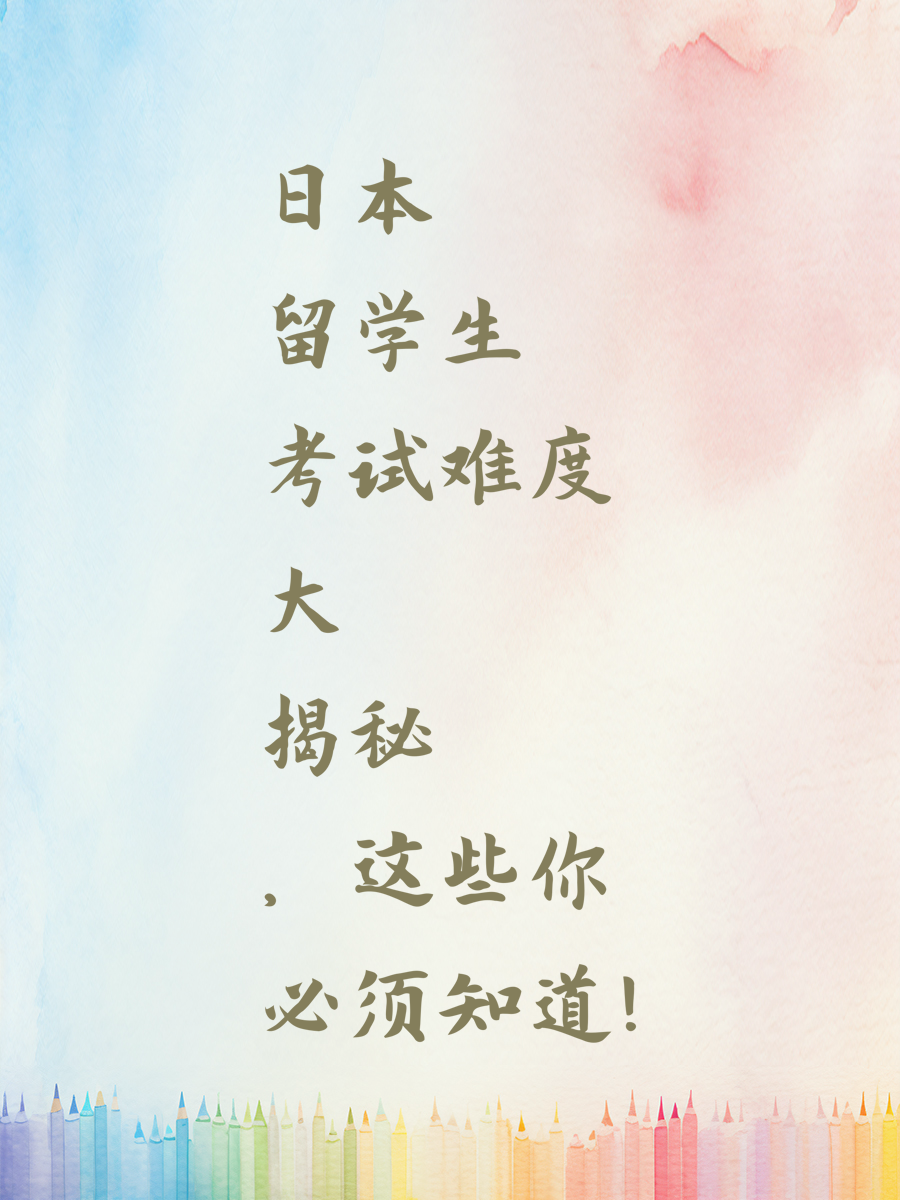 日本
留学生
考试难度
大
揭秘
，这些你
必须知道!